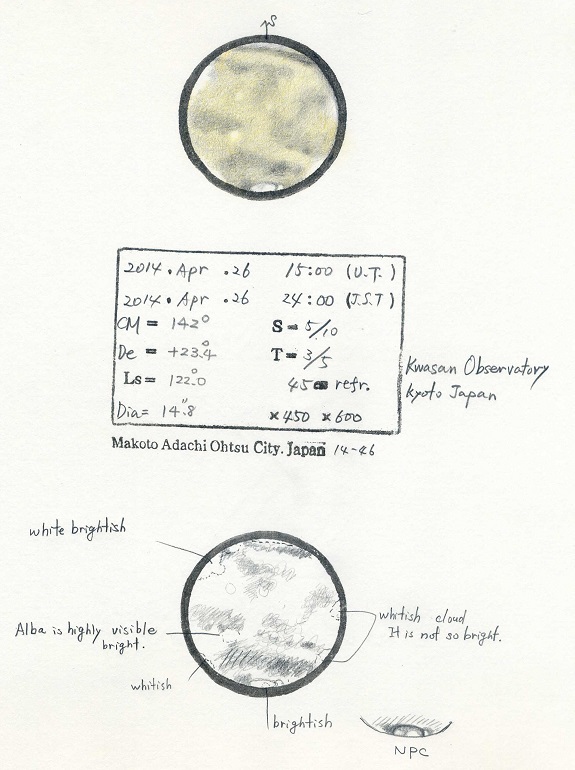 S
2014.Apr .26 15:00 (U.T.)
2014.Apr .26 24:00 (J.S.T)
CM = 142° S = 5/10
De = +23.°4 T = 3/5
Ls = 122.°0 45 refr.
Dia = 14".8 ×450 ×600
Kwasan Observatory
kyoto Japan
Makoto Adachi Ohtsu City. Japan 14-46
white brightish
Alba is highly visible
bright.
whitish
whitish cloud
It is not so bright.
brightish
NPC